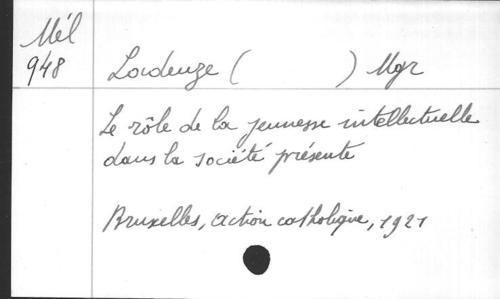 Mél
948
Ladeuze ( ) Mgr
Le rôle de la jeunesse intellectuelle
dans la société présente
Bruxelles, action catholique, 1921